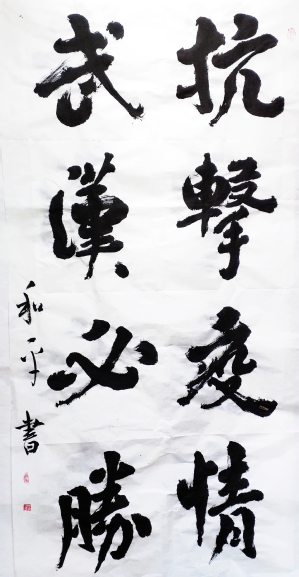 抗擊疫情
武漢必勝
和平書